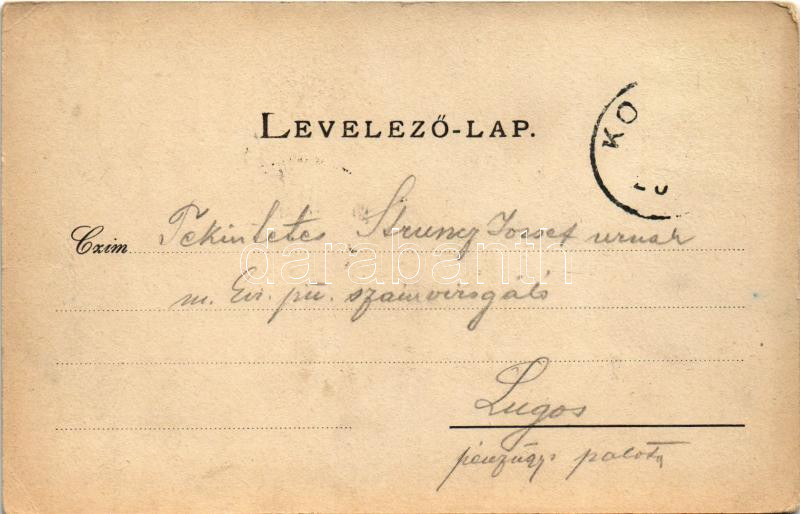 LEVELEZŐ-LAP.
KO
Czim Tekintetes Strung József urnak
m. kir. pü. számvizsgáló
darabanth
Lugos
pénzügyi palota